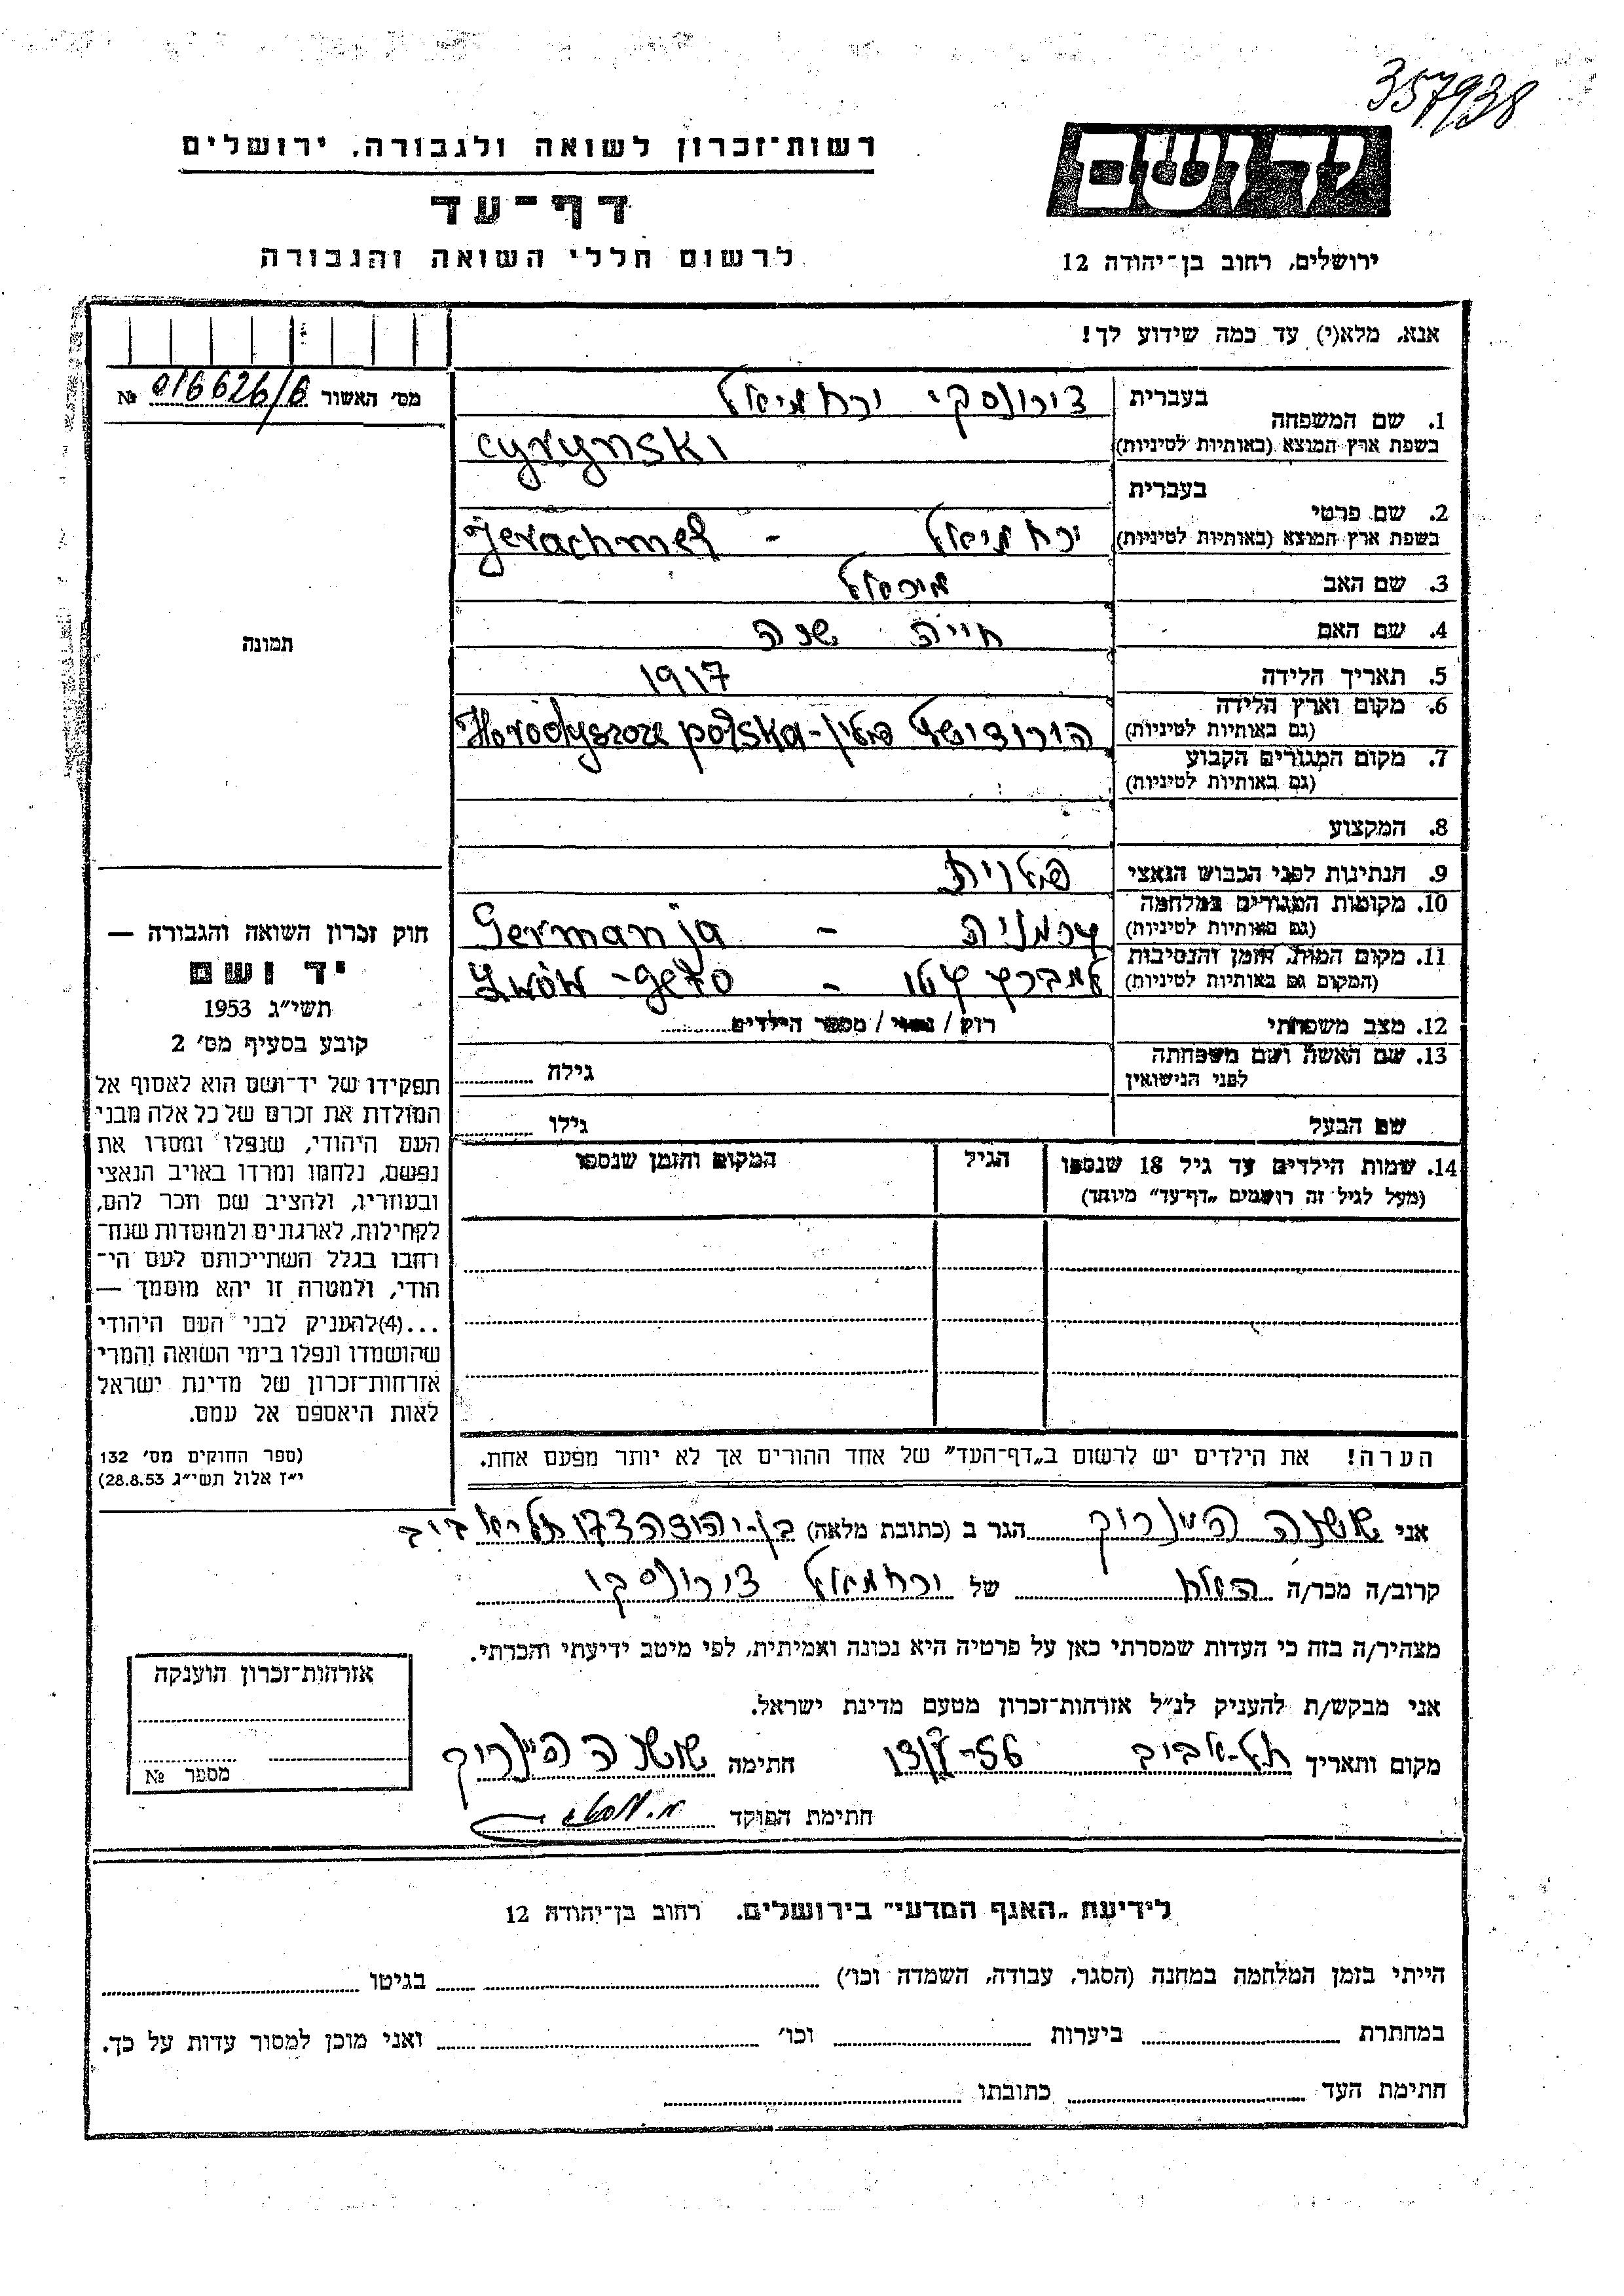 357938
רשות־זכרון לשואה ולגבורה, ירושלים
יד ושם
דף־עד
לרשום חללי השואה והגבורה
ירושלים, רחוב בן־יהודה 12
אנא, מלא(י) עד כמה שידוע לך!
מס׳ האשור 016626/6 №
1. שם המשפחה
בעברית צירונסקי ירחמיאל
בשפת ארץ המוצא (באותיות לטיניות) cyrynski
2. שם פרטי
בעברית
בשפת ארץ המוצא (באותיות לטיניות) ירחמיאל - Jerachmel
3. שם האב מיכאל
4. שם האם חייה שנה
5. תאריך הלידה 1917
6. מקום וארץ הלידה
(גם באותיות לטיניות) הורודישטש פולין - Horodyszcze polska
7. מקום המגורים הקבוע
(גם באותיות לטיניות)
8. המקצוע
9. הנתינות לפני הכבוש הנאצי פולנית
10. מקומות המגורים במלחמה
(גם באותיות לטיניות) גרמניה - Germanja
11. מקום המות, הזמן והנסיבות
(המקום גם באותיות לטיניות) למברג גטו - Lwów - geto
12. מצב משפחתי רוק / נשוי / מספר הילדים
13. שם האשה ושם משפחתה
לפני הנישואין גילה
שם הבעל גילו
14. שמות הילדים עד גיל 18 שנספו
(מעל לגיל זה רושמים „דף־עד” מיוחד)
הגיל
המקום והזמן שנספו
הערה! את הילדים יש לרשום ב„דף־העד” של אחד ההורים אך לא יותר מפעם אחת.
תמונה
חוק זכרון השואה והגבורה —
יד ושם
תשי״ג 1953
קובע בסעיף מס׳ 2
תפקידו של יד־ושם הוא לאסוף אל
המולדת את זכרם של כל אלה מבני
העם היהודי, שנפלו ומסרו את
נפשם, נלחמו ומרדו באויב הנאצי
ובעוזריו, ולהציב שם וזכר להם,
לקהילות, לארגונים ולמוסדות שנח־
רבו בגלל השתייכותם לעם הי־
הודי, ולמטרה זו יהא מוסמך —
...(4)להעניק לבני העם היהודי
שהושמדו ונפלו בימי השואה והמרי
אזרחות־זכרון של מדינת ישראל
לאות היאספם אל עמם.
(ספר החוקים מס׳ 132
י״ז אלול תשי״ג 28.8.53)
אני ששנה הינרוך הגר ב (כתובת מלאה) בן-יהודה תל-אביב
קרוב/ה מכר/ה של ירחמיאל צירונסקי
מצהיר/ה בזה כי העדות שמסרתי כאן על פרטיה היא נכונה ואמיתית, לפי מיטב ידיעתי והכרתי.
אני מבקש/ת להעניק לנ״ל אזרחות־זכרון מטעם מדינת ישראל.
מקום ותאריך תל-אביב 56 חתימה
חתימת הפוקד
אזרחות־זכרון הוענקה
מספר №
לידיעת „האגף המדעי” בירושלים, רחוב בן־יהודה 12
הייתי בזמן המלחמה במחנה (הסגר, עבודה, השמדה וכו׳) בגיטו
במחתרת ביערות וכו׳ ואני מוכן למסור עדות על כך.
חתימת העד כתובתו